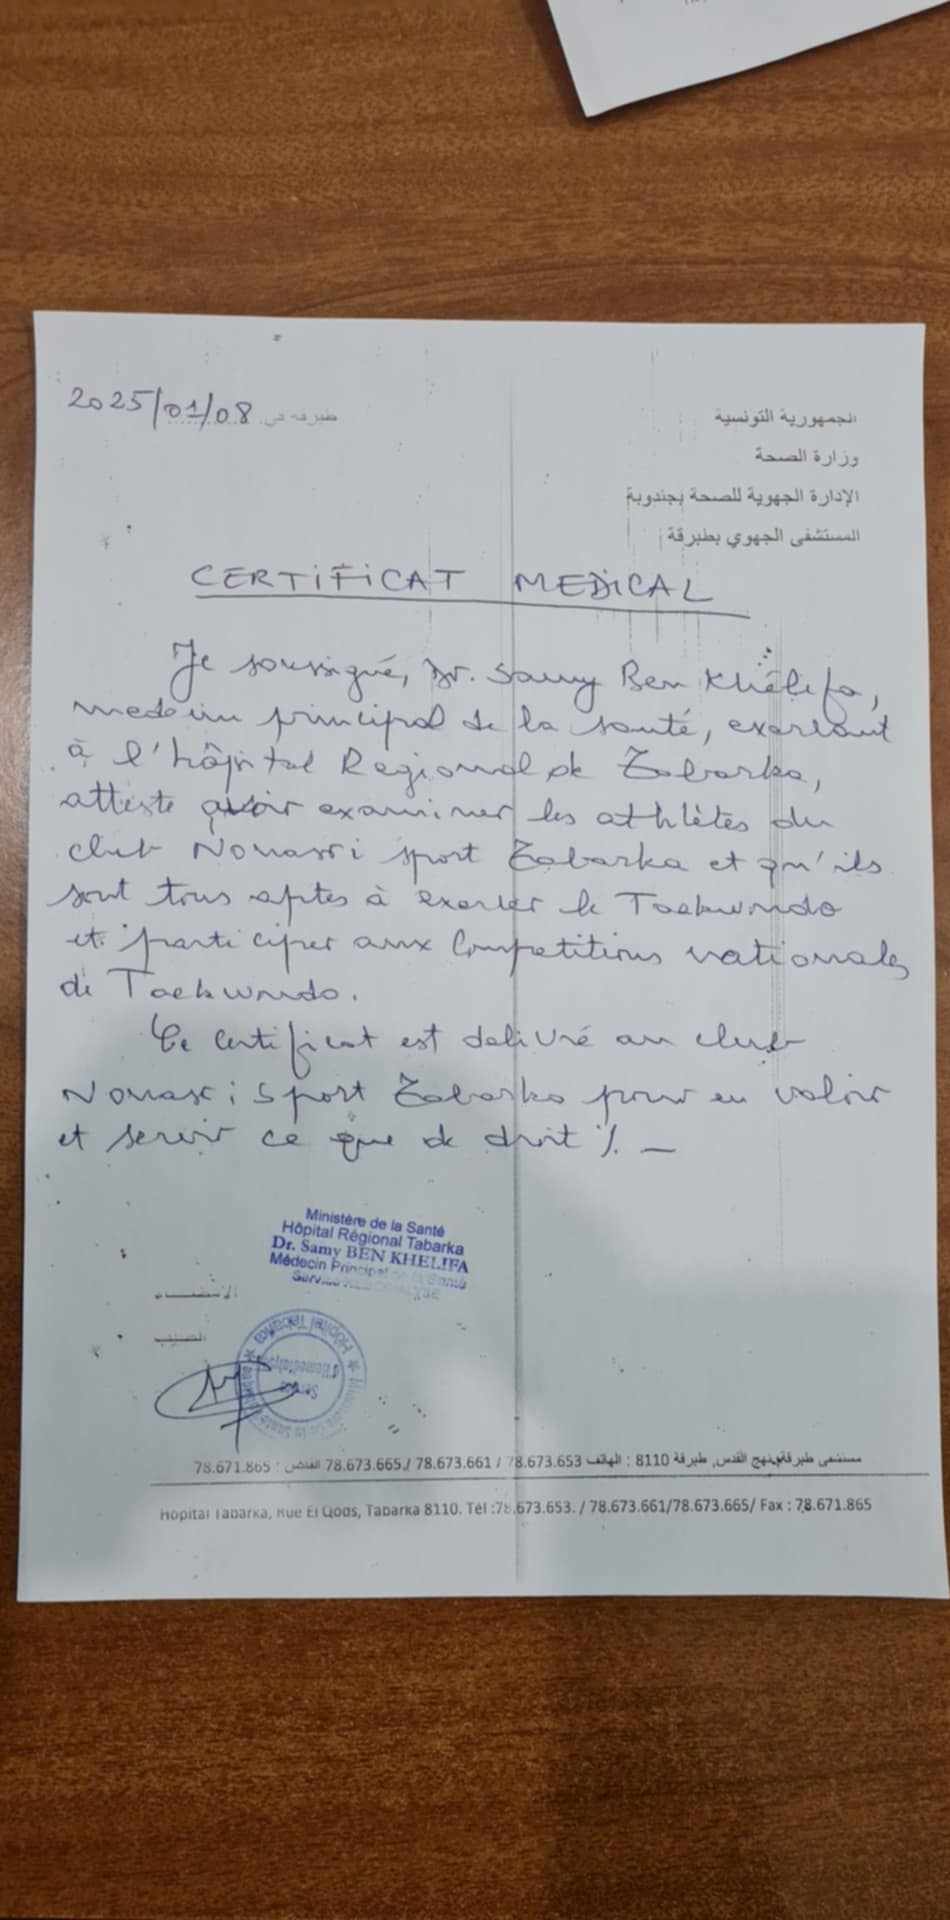 الجمهورية التونسية
وزارة الصحة
الإدارة الجهوية للصحة بجندوبة
المستشفى الجهوي بطبرقة
طبرقة في 2025/01/08
CERTIFICAT MEDICAL
Je soussigné, Dr. Samy Ben Khélifa,
medecin principal de la santé, exerçant
à l'hôpital Regional de Tabarka,
atteste avoir examiner les athlètes du
club Nouasri sport Tabarka et qu'ils
sont tous aptes à exercer le Taekwondo
et participer aux Competitions nationales
de Taekwondo.
Ce certificat est delivré au club
Nouasri Sport Tabarka pour en valoir
et servir ce que de droit ./. _
Ministère de la Santé
Hôpital Régional Tabarka
Dr. Samy BEN KHELIFA
Médecin Principal de la Santé
الإمضاء
الطبيب
Hôpital Tabarka
Service
d'Hémodialyse
مستشفى طبرقة نهج القدس, طبرقة 8110 : الهاتف 78.673.653 / 78.673.661 / 78.673.665 الفاكس : 78.671.865
Hôpital Tabarka, Rue El Qods, Tabarka 8110. Tél :78.673.653. / 78.673.661/78.673.665/ Fax : 78.671.865